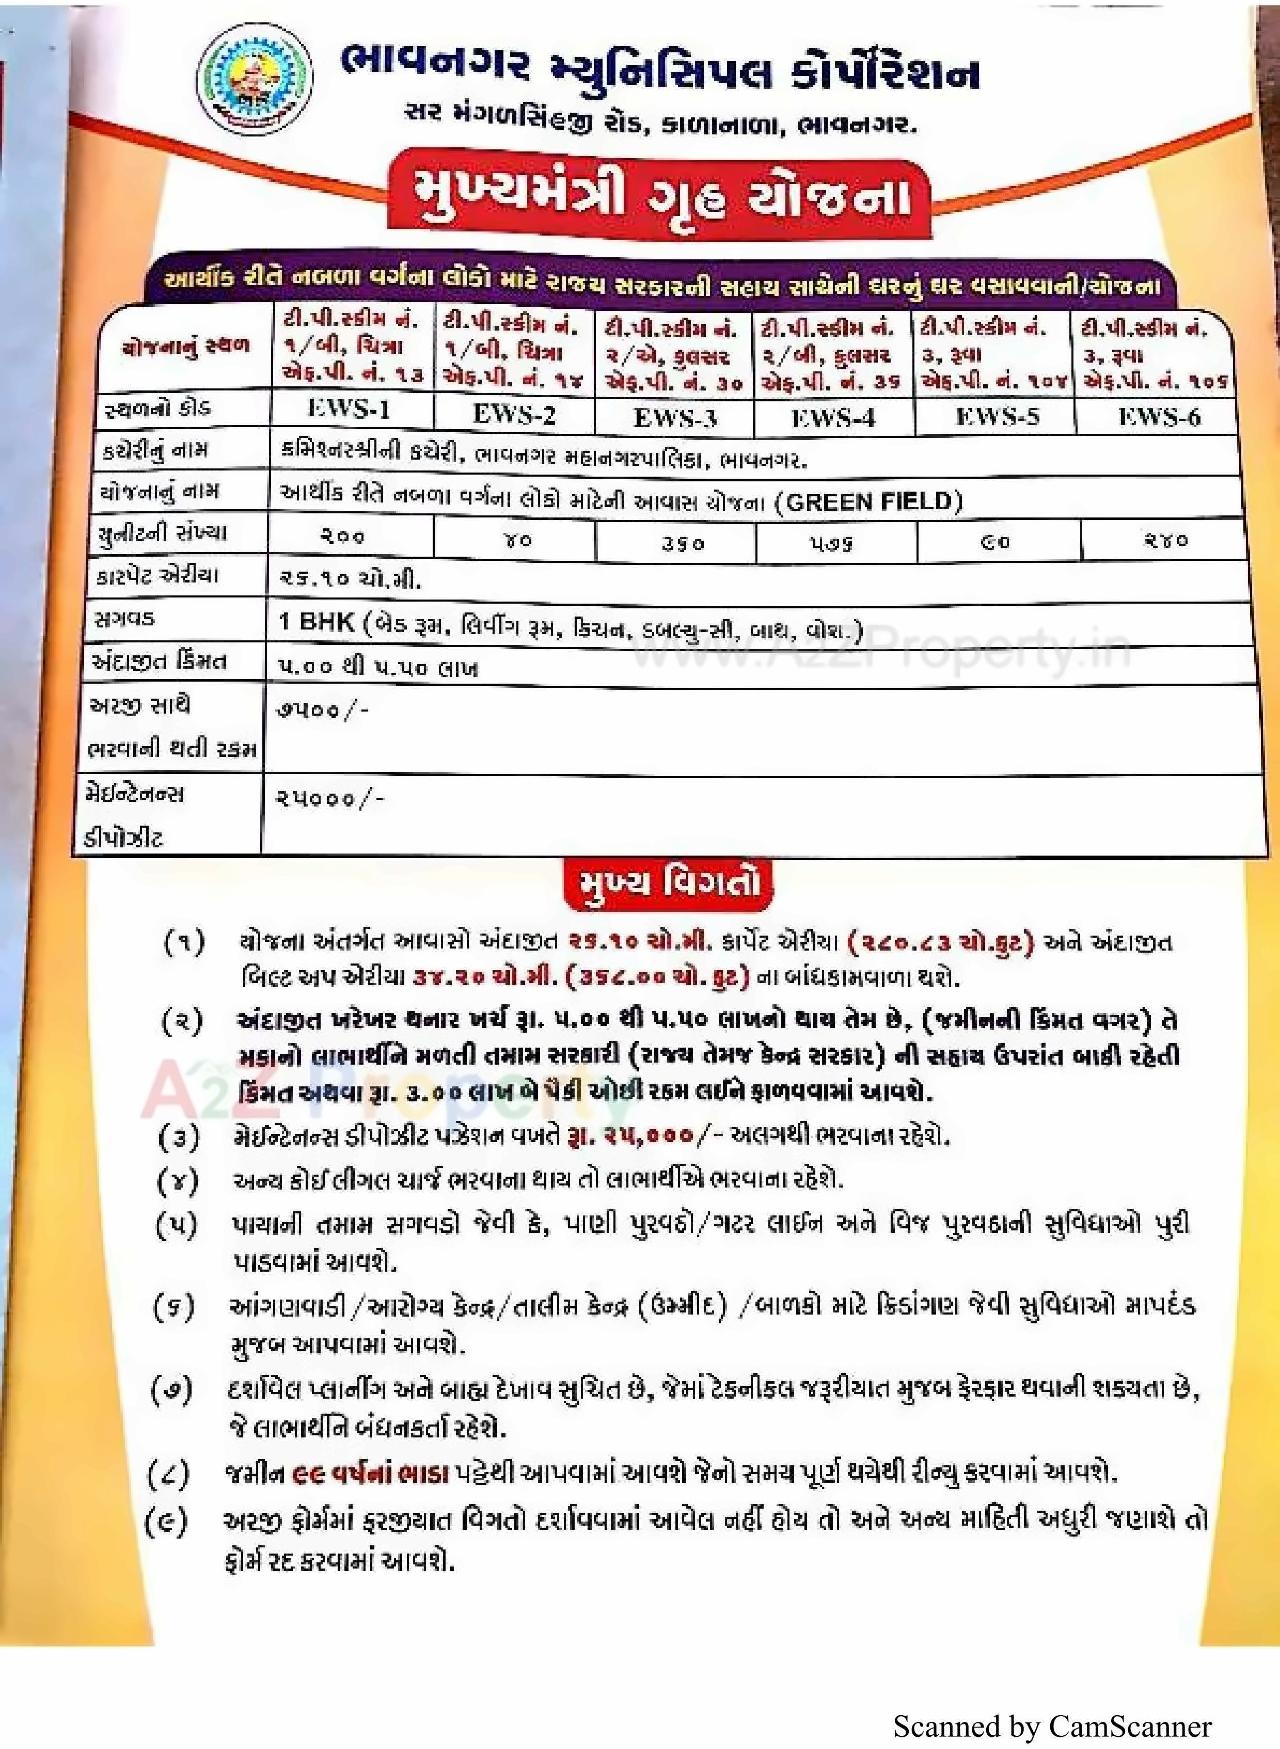 ભાવનગર મ્યુનિસિપલ કોર્પોરેશન
સર મંગળસિંહજી રોડ, કાળાનાળા, ભાવનગર.
મુખ્યમંત્રી ગૃહ યોજના
આર્થીક રીતે નબળા વર્ગના લોકો માટે રાજ્ય સરકારની સહાય સાથેની ઘરનું ઘર વસાવવાની/યોજના
યોજનાનું સ્થળ
ટી.પી.સ્કીમ નં. ૧/બી, ચિત્રા એફ.પી. નં. ૧૩
ટી.પી.સ્કીમ નં. ૧/બી, ચિત્રા એફ.પી. નં. ૧૪
ટી.પી.સ્કીમ નં. ૨/એ, ફુલસર એફ.પી. નં. ૩૦
ટી.પી.સ્કીમ નં. ૨/બી, ફુલસર એફ.પી. નં. ૩૬
ટી.પી.સ્કીમ નં. ૩, રૂવા એફ.પી. નં. ૧૦૪
ટી.પી.સ્કીમ નં. ૩, રૂવા એફ.પી. નં. ૧૦૬
સ્થળનો કોડ EWS-1 EWS-2 EWS-3 EWS-4 EWS-5 EWS-6
કચેરીનું નામ કમિશ્નરશ્રીની કચેરી, ભાવનગર મહાનગરપાલિકા, ભાવનગર.
યોજનાનું નામ આર્થીક રીતે નબળા વર્ગના લોકો માટેની આવાસ યોજના (GREEN FIELD)
યુનીટની સંખ્યા ૨૦૦ ૪૦ ૩૬૦ ૫૭૬ ૯૦ ૨૪૦
કારપેટ એરીયા ૨૬.૧૦ ચો.મી.
સગવડ 1 BHK (બેડ રૂમ, લિવીંગ રૂમ, કિચન, ડબલ્યુ-સી, બાથ, વોશ.)
અંદાજીત કિંમત ૫.૦૦ થી ૫.૫૦ લાખ
અરજી સાથે ૭૫૦૦/-
ભરવાની થતી રકમ
મેઈન્ટેનન્સ ૨૫૦૦૦/-
ડીપોઝીટ
www.A2ZProperty.in
મુખ્ય વિગતો
(૧) યોજના અંતર્ગત આવાસો અંદાજીત ૨૬.૧૦ ચો.મી. કાર્પેટ એરીયા (૨૮૦.૮૩ ચો.ફુટ) અને અંદાજીત
બિલ્ટ અપ એરીયા ૩૪.૨૦ ચો.મી. (૩૬૮.૦૦ ચો.ફુટ) ના બાંધકામવાળા થશે.
(૨) અંદાજીત ખરેખર થનાર ખર્ચ રૂા. ૫.૦૦ થી ૫.૫૦ લાખનો થાય તેમ છે, (જમીનની કિંમત વગર) તે
મકાનો લાભાર્થીને મળતી તમામ સરકારી (રાજ્ય તેમજ કેન્દ્ર સરકાર) ની સહાય ઉપરાંત બાકી રહેતી
કિંમત અથવા રૂા. ૩.૦૦ લાખ બે પૈકી ઓછી રકમ લઈને ફાળવવામાં આવશે.
A2Z Property
(૩) મેઈન્ટેનન્સ ડીપોઝીટ પઝેશન વખતે રૂા. ૨૫,૦૦૦/- અલગથી ભરવાના રહેશે.
(૪) અન્ય કોઈ લીગલ ચાર્જ ભરવાના થાય તો લાભાર્થીએ ભરવાના રહેશે.
(૫) પાયાની તમામ સગવડો જેવી કે, પાણી પુરવઠો/ગટર લાઈન અને વિજ પુરવઠાની સુવિધાઓ પુરી
પાડવામાં આવશે.
(૬) આંગણવાડી/આરોગ્ય કેન્દ્ર/તાલીમ કેન્દ્ર (ઉમ્મીદ) /બાળકો માટે ક્રિડાંગણ જેવી સુવિધાઓ માપદંડ
મુજબ આપવામાં આવશે.
(૭) દર્શાવેલ પ્લાનીંગ અને બાહ્ય દેખાવ સુચિત છે, જેમાં ટેકનીકલ જરૂરીયાત મુજબ ફેરફાર થવાની શક્યતા છે,
જે લાભાર્થીને બંધનકર્તા રહેશે.
(૮) જમીન ૯૯ વર્ષનાં ભાડા પટ્ટેથી આપવામાં આવશે જેનો સમય પૂર્ણ થયેથી રીન્યુ કરવામાં આવશે.
(૯) અરજી ફોર્મમાં ફરજીયાત વિગતો દર્શાવવામાં આવેલ નહીં હોય તો અને અન્ય માહિતી અધુરી જણાશે તો
ફોર્મ રદ કરવામાં આવશે.
Scanned by CamScanner